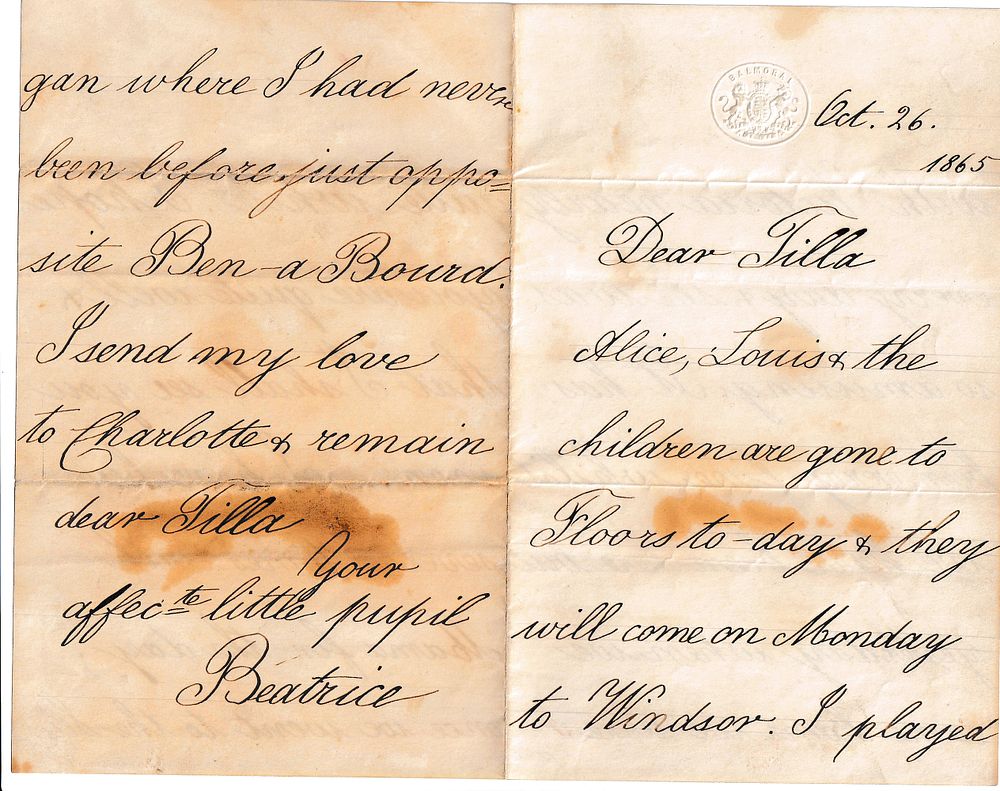 BALMORAL
Oct. 26.
1865
Dear Tilla
Alice, Louis & the
children are gone to
Floors to-day & they
will come on Monday
to Windsor. I played
gan where I had never
been before, just oppo=
site Ben-a Bourd.
I send my love
to Charlotte & remain
dear Tilla
Your
affecte little pupil
Beatrice